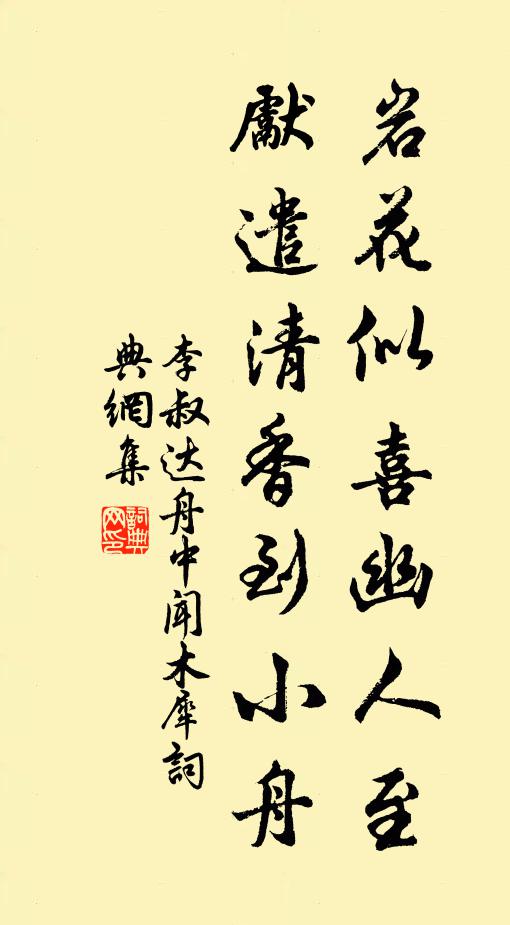 岩花似喜幽人至
獻遣清香到小舟
李叔达舟中聞木犀詞
典網集
詞典
网印